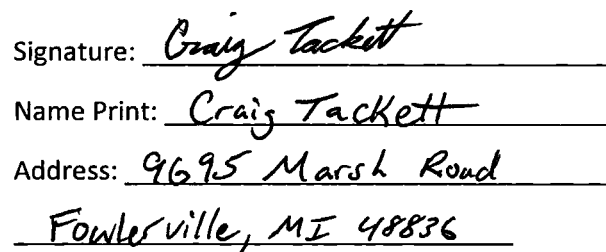 Signature: Craig Tackett
Name Print: Craig Tackett
Address: 9695 Marsh Road
Fowlerville, MI 48836